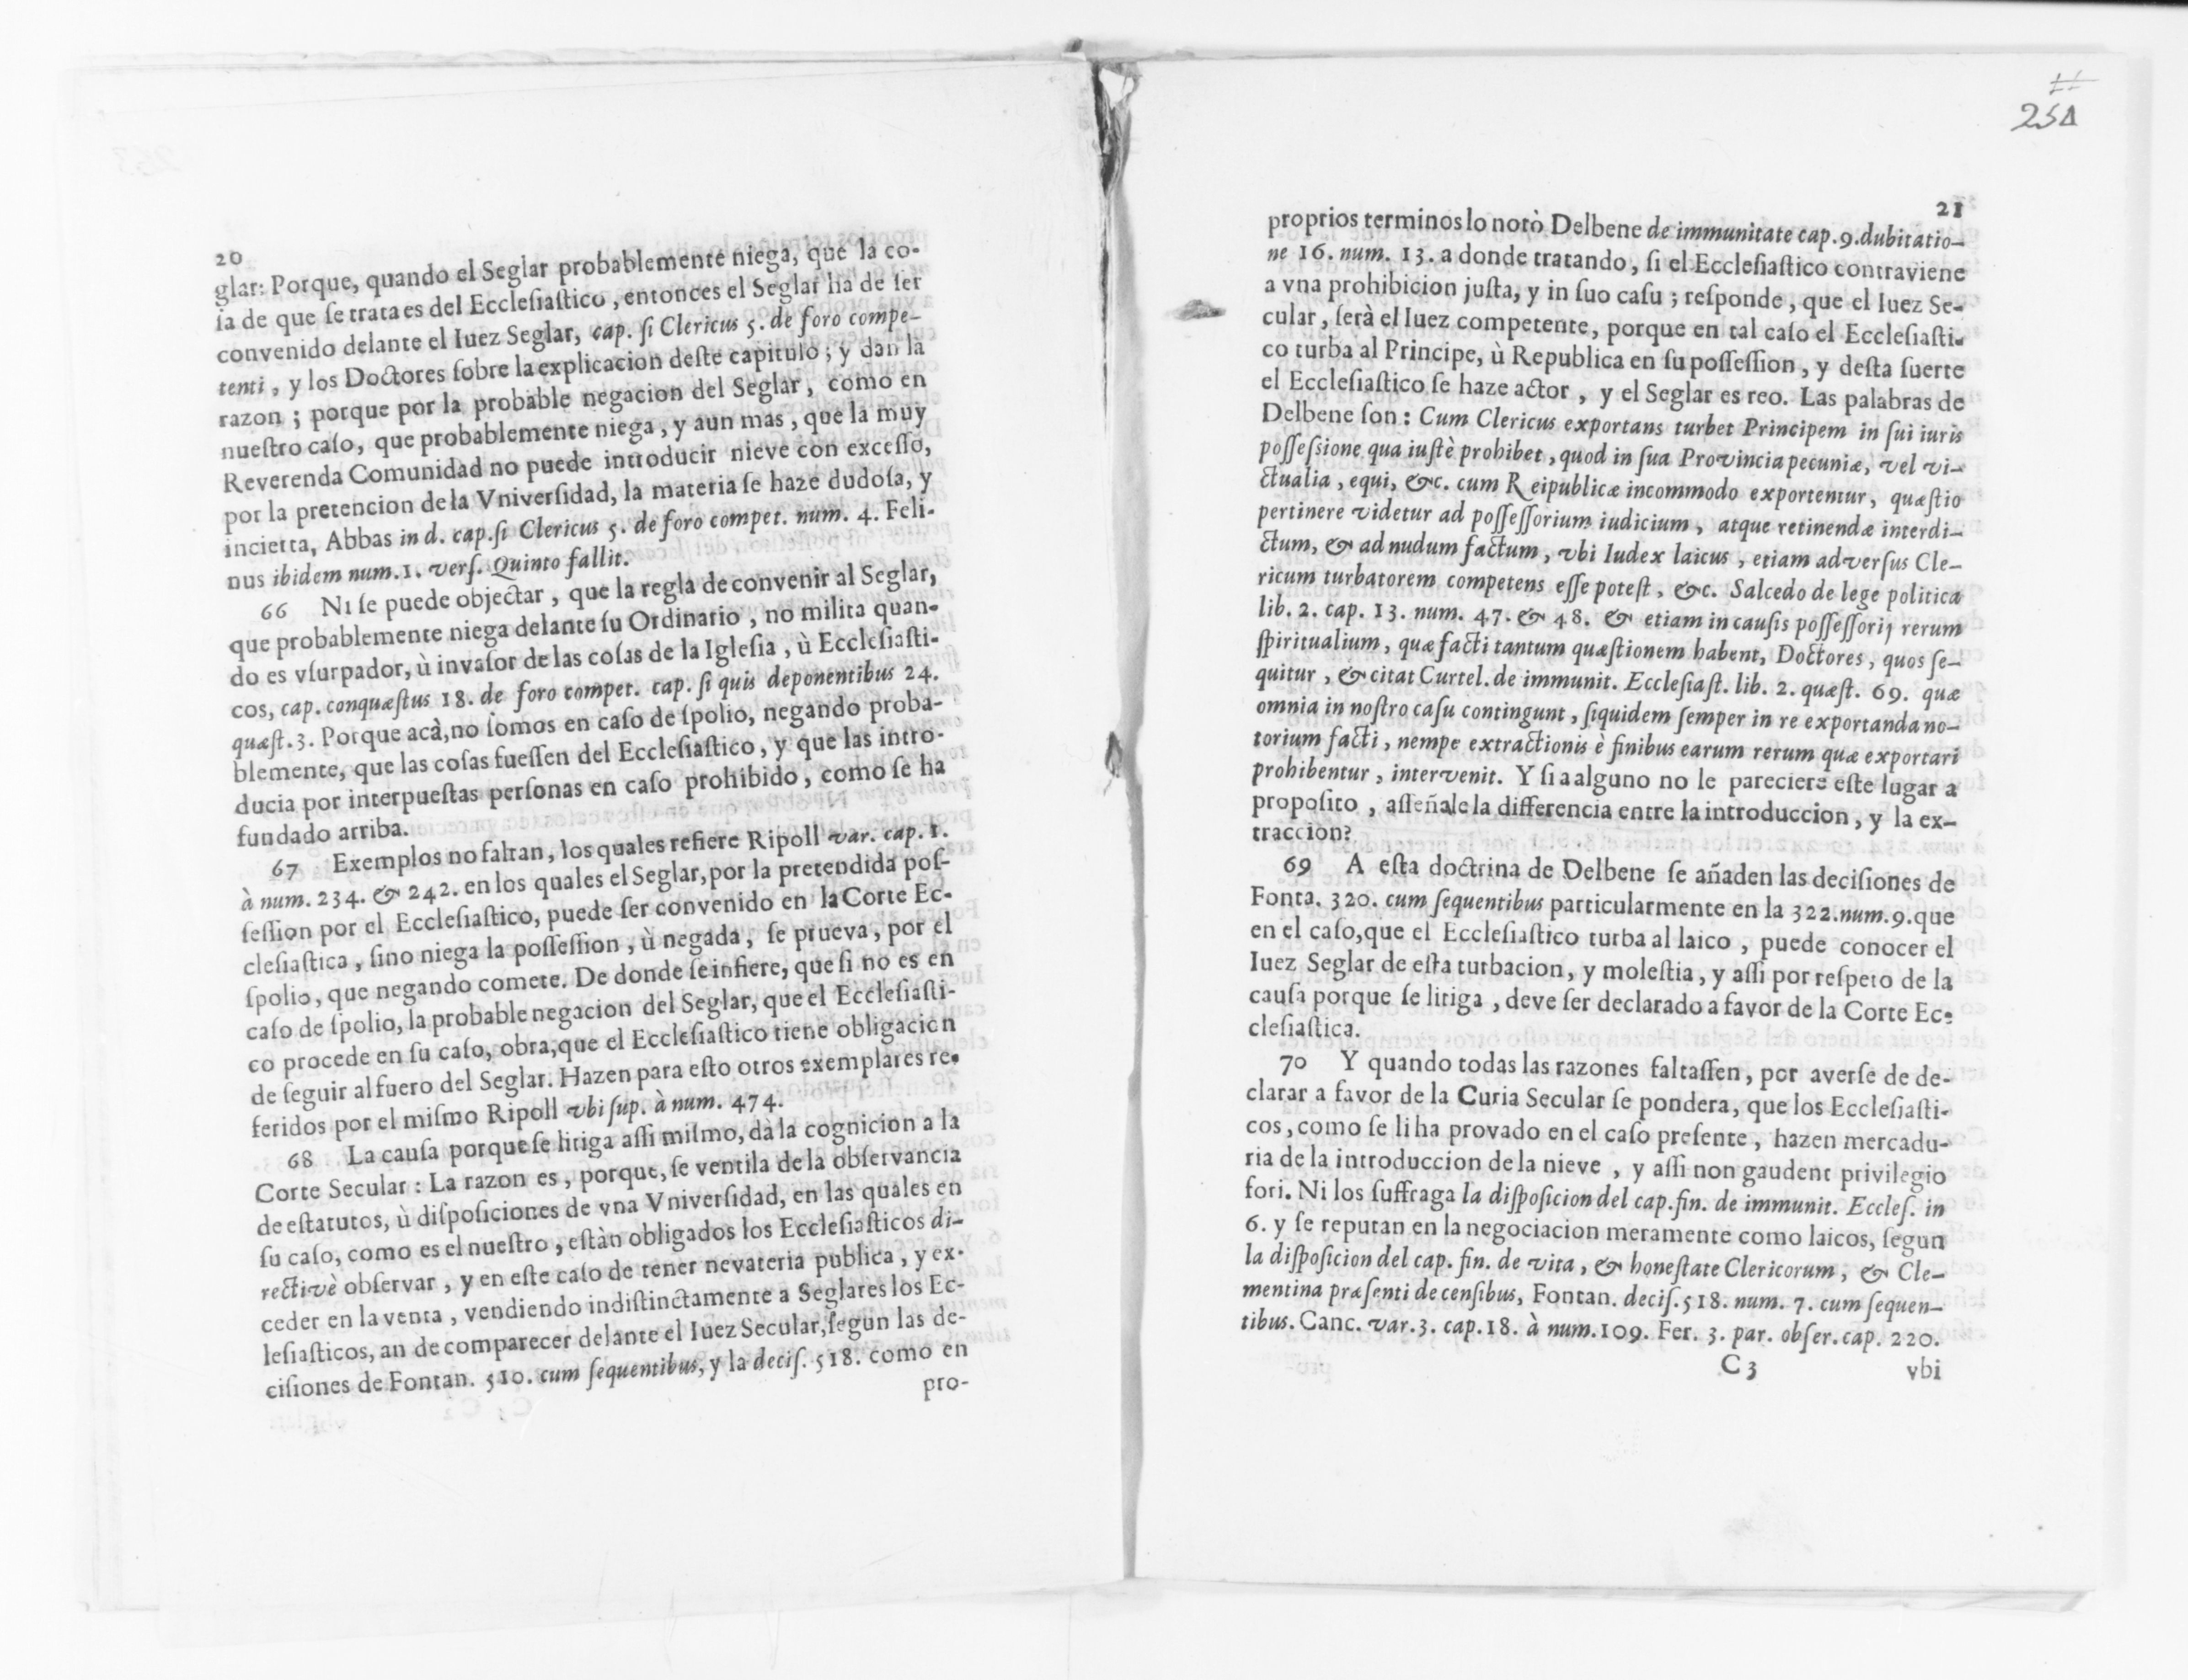 20
glar: Porque, quando el Seglar probablemente niega, que la co-
sa de que se trata es del Ecclesiastico, entonces el Seglar ha de ser
convenido delante el Iuez Seglar, cap. si Clericus 5. de foro compe-
tenti, y los Doctores sobre la explicacion deste capitulo; y dan la
razon; porque por la probable negacion del Seglar, como en
nuestro caso, que probablemente niega, y aun mas, que la muy
Reverenda Comunidad no puede introducir nieve con excesso,
por la pretencion de la Vniversidad, la materia se haze dudosa, y
incierta, Abbas in d. cap. si Clericus 5. de foro compet. num. 4. Feli-
nus ibidem num. 1. vers. Quinto fallit.
66 Ni se puede objectar, que la regla de convenir al Seglar,
que probablemente niega delante su Ordinario, no milita quan-
do es vsurpador, ù invasor de las cosas de la Iglesia, ù Ecclesiasti-
cos, cap. conquæstus 18. de foro compet. cap. si quis deponentibus 24.
quæst. 3. Porque acà, no somos en caso de spolio, negando proba-
blemente, que las cosas fuessen del Ecclesiastico, y que las intro-
ducia por interpuestas personas en caso prohibido, como se ha
fundado arriba.
67 Exemplos no faltan, los quales refiere Ripoll var. cap. 1.
à num. 234. & 242. en los quales el Seglar, por la pretendida pos-
session por el Ecclesiastico, puede ser convenido en la Corte Ec-
clesiastica, sino niega la possession, ù negada, se prueva, por el
spolio, que negando comete. De donde se infiere, que si no es en
caso de spolio, la probable negacion del Seglar, que el Ecclesiasti-
co procede en su caso, obra, que el Ecclesiastico tiene obligacion
de seguir al fuero del Seglar. Hazen para esto otros exemplares re-
feridos por el mismo Ripoll vbi sup. à num. 474.
68 La causa porque se litiga assi mismo, dà la cognicion a la
Corte Secular: La razon es, porque, se ventila de la observancia
de estatutos, ù disposiciones de vna Vniversidad, en las quales en
su caso, como es el nuestro, estàn obligados los Ecclesiasticos di-
rectivè observar, y en este caso de tener nevateria publica, y ex-
ceder en la venta, vendiendo indistinctamente a Seglares los Ec-
lesiasticos, an de comparecer delante el Iuez Secular, segun las de-
cisiones de Fontan. 510. cum sequentibus, y la decis. 518. como en
pro-
254
21
proprios terminos lo notò Delbene de immunitate cap. 9. dubitatio-
ne 16. num. 13. a donde tratando, si el Ecclesiastico contraviene
a vna prohibicion justa, y in suo casu; responde, que el Iuez Se-
cular, serà el Iuez competente, porque en tal caso el Ecclesiasti-
co turba al Principe, ù Republica en su possession, y desta suerte
el Ecclesiastico se haze actor, y el Seglar es reo. Las palabras de
Delbene son: Cum Clericus exportans turbet Principem in sui iuris
possessione qua iustè prohibet, quod in sua Provincia pecuniæ, vel vi-
ctualia, equi, &c. cum Reipublicæ incommodo exportentur, quæstio
pertinere videtur ad possessorium iudicium, atque retinendæ interdi-
ctum, & ad nudum factum, vbi Iudex laicus, etiam adversus Cle-
ricum turbatorem competens esse potest, &c. Salcedo de lege politica
lib. 2. cap. 13. num. 47. & 48. & etiam in causis possessorij rerum
spiritualium, quæ facti tantum quæstionem habent, Doctores, quos se-
quitur, & citat Curtel. de immunit. Ecclesiast. lib. 2. quæst. 69. quæ
omnia in nostro casu contingunt, siquidem semper in re exportanda no-
torium facti, nempe extractionis è finibus earum rerum quæ exportari
prohibentur, intervenit. Y si a alguno no le pareciere este lugar a
proposito, asseñale la differencia entre la introduccion, y la ex-
traccion?
69 A esta doctrina de Delbene se añaden las decisiones de
Fonta. 320. cum sequentibus particularmente en la 322. num. 9. que
en el caso, que el Ecclesiastico turba al laico, puede conocer el
Iuez Seglar de esta turbacion, y molestia, y assi por respeto de la
causa porque se litiga, deve ser declarado a favor de la Corte Ec-
clesiastica.
70 Y quando todas las razones faltassen, por averse de de-
clarar a favor de la Curia Secular se pondera, que los Ecclesiasti-
cos, como se li ha provado en el caso presente, hazen mercadu-
ria de la introduccion de la nieve, y assi non gaudent privilegio
fori. Ni los suffraga la disposicion del cap. fin. de immunit. Eccles. in
6. y se reputan en la negociacion meramente como laicos, segun
la disposicion del cap. fin. de vita, & honestate Clericorum, & Cle-
mentina præsenti de censibus, Fontan. decis. 518. num. 7. cum sequen-
tibus. Canc. var. 3. cap. 18. à num. 109. Fer. 3. par. obser. cap. 220.
C3 vbi